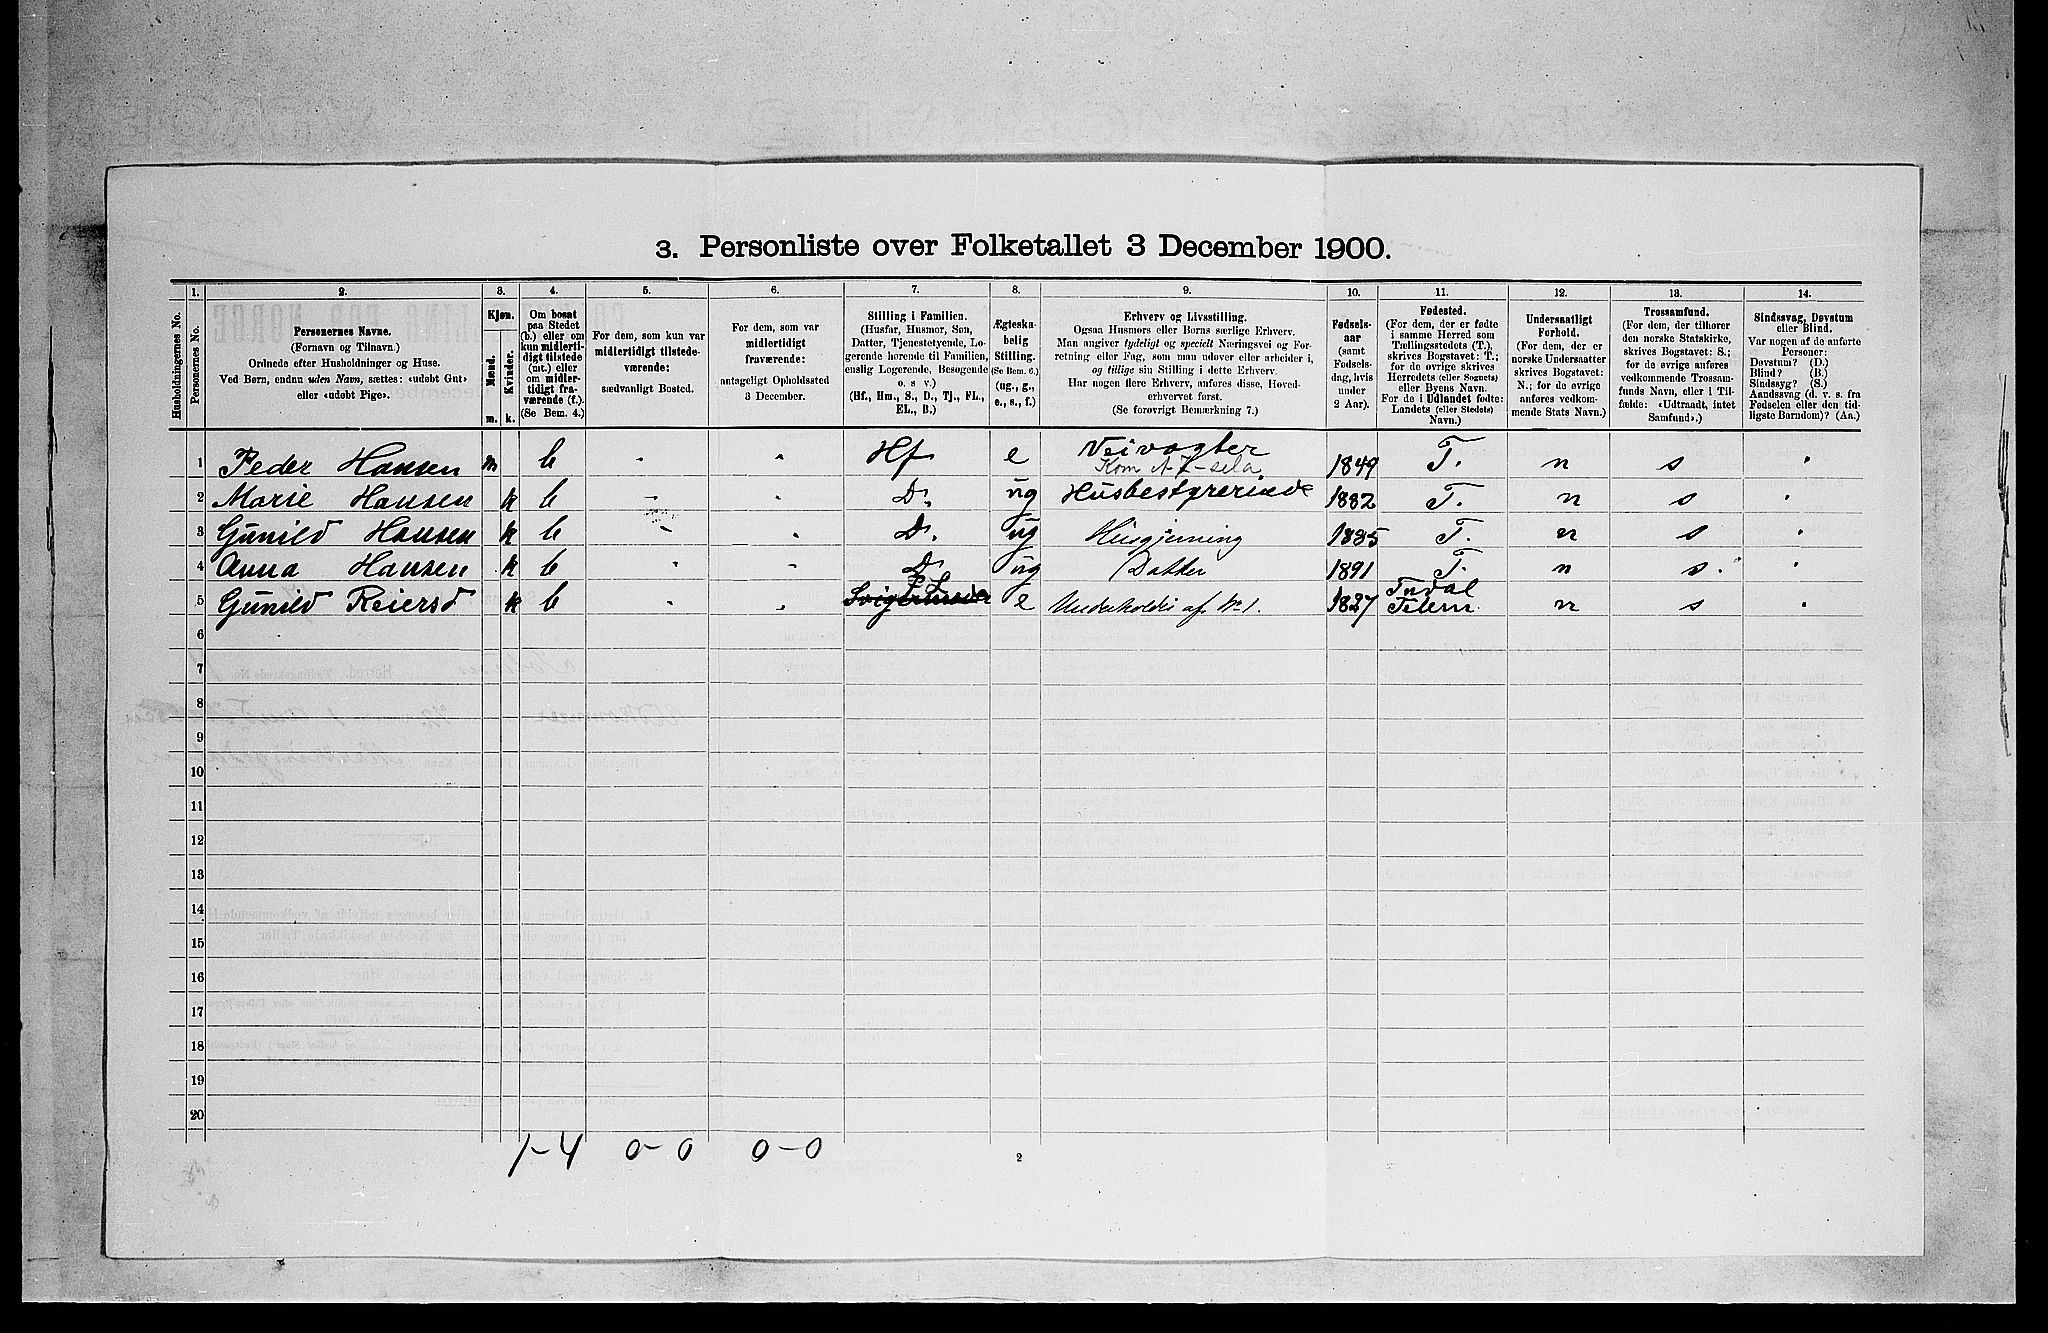 3. Personliste over Folketallet 3 December 1900.
Husholdningernes No.
1.
Personernes No.
2.
Personernes Navne.
(Fornavn og Tilnavn.)
Ordnede efter Husholdninger og Huse.
Ved Børn, endnu uden Navn, sættes: «udøbt Gut»
eller «udøbt Pige».
3.
Kjøn.
Mænd.
Kvinder.
m. k.
4.
Om bosat
paa Stedet
(b.) eller om
kun midlerti-
digt tilstede
(mt.) eller
om midler-
tidigt fra-
værende (f.).
(Se Bem. 4.)
5.
For dem, som kun var
midlertidigt tilstede-
værende:
sædvanligt Bosted.
6.
For dem, som var
midlertidigt
fraværende:
antageligt Opholdssted
3 December.
7.
Stilling i Familien.
(Husfar, Husmor, Søn,
Datter, Tjenestetyende, Lo-
gerende hørende til Familien,
enslig Logerende, Besøgende
o. s. v.)
(Hf., Hm., S., D., Tj., FL.,
EL., B.)
8.
Ægteska-
belig
Stilling.
(Se Bem. 6.)
(ug., g.,
e., s., f.)
9.
Erhverv og Livsstilling.
Ogsaa Husmors eller Børns særlige Erhverv.
Man angiver tydeligt og specielt Næringsvei og For-
retning eller Fag, som man udøver eller arbeider i,
og tillige sin Stilling i dette Erhverv.
Har nogen flere Erhverv, anføres disse, Hoved-
erhvervet først.
(Se forøvrigt Bemærkning 7.)
10.
Fødsels-
aar
(samt
Fødsels-
dag, hvis
under
2 Aar).
11.
Fødested.
(For dem, der er fødte
i samme Herred som
Tællingsstedets (T.),
skrives Bogstavet: T.;
for de øvrige skrives
Herredets (eller Sognets)
eller Byens Navn.
For de i Udlandet fødte:
Landets (eller Stedets)
Navn.)
12.
Undersaatligt
Forhold.
(For dem, der er
norske Undersaatter
skrives Bogstavet:
N.; for de øvrige
anføres vedkom-
mende Stats Navn.)
13.
Trossamfund.
(For dem, der tilhører
den norske Statskirke,
skrives Bogstavet: S.;
for de øvrige anføres
vedkommende Trossam-
funds Navn, eller i Til-
fælde: «Udtraadt, intet
Samfund».)
14.
Sindssvag, Døvstum
eller Blind.
Var nogen af de anførte
Personer:
Døvstum? (D.)
Blind? (B.)
Sindssyg? (S.)
Aandssvag (d. v. s. fra
Fødselen eller den tid-
ligste Barndom)? (Aa.)
1 Peder Hansen m b Hf e Veivogter 1849 T. n s
2 Marie Hansen k b D. ug Husbestyrerinde 1882 T. n s
3 Gunild Hansen k b D. ug Husgjerning 1885 T. n s
4 Anna Hansen k b D ug Datter 1891 T. n s.
5 Gunild Reiersd k b Svigermoder e Underholdes af No 1. 1827 n s
6
7
8
9
10
11
12
13
14
15
16
17
18
19
20
1-4 0-0 0-0
2